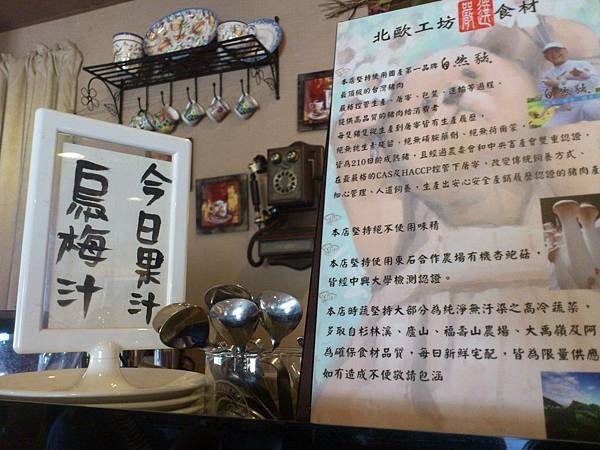 今日果汁
烏梅汁
北歐工坊嚴選食材
本店堅持使用國產第一品牌自然豬
最頂級的台灣豬肉
嚴格控管生產、屠宰、包裝、運輸等過程,
提供高品質的豬肉給消費者
每隻豬隻從生產到屠宰皆有生產履歷,
絕無抗生素殘留、絕無磺胺藥劑、絕無荷爾蒙,
皆為210日齡成熟豬,且經過農委會和中央畜產會雙重認證,
在最嚴格的CAS及HACCP控管下屠宰,改變傳統飼養方式,
細心管理、人道飼養,生產出安心安全產銷履歷認證的豬肉產
本店堅持絕不使用味精
本店堅持使用東石合作農場有機杏鮑菇,
皆經中興大學檢測認證。
本店時蔬堅持大部分為純淨無汙染之高冷蔬菜,
多取自杉林溪、廬山、福壽山農場、大禹嶺及阿
為確保食材品質,每日新鮮宅配,皆為限量供應
如有造成不便敬請包涵
自然豬